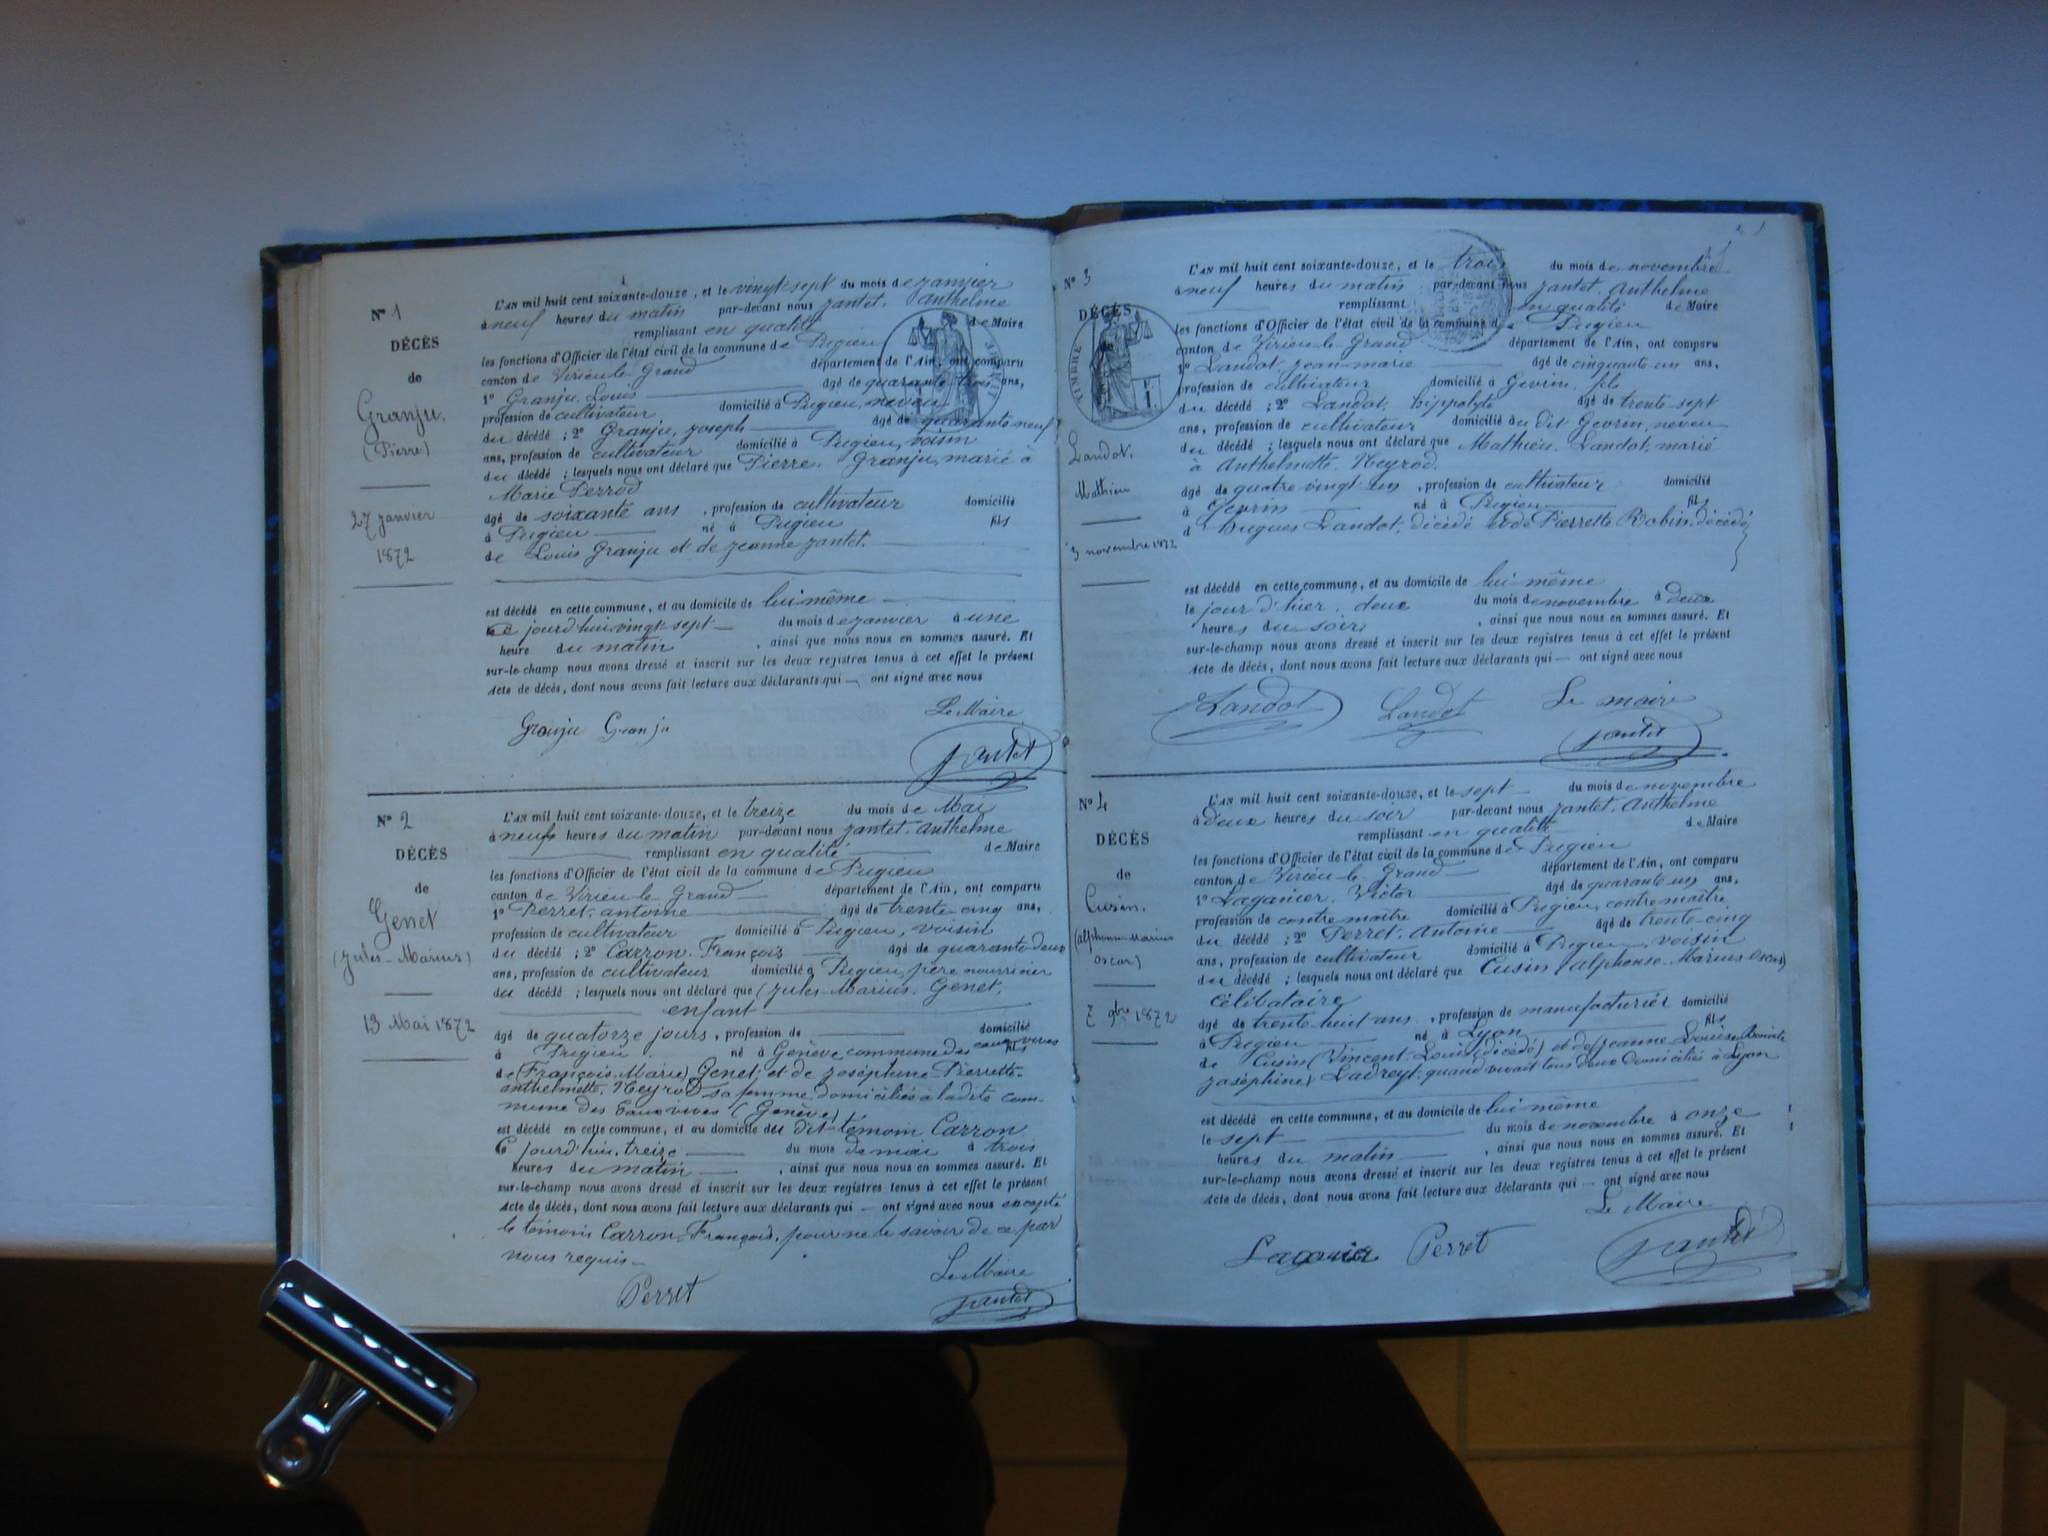 1
N° 1
DÉCÈS
de
Granju,
(Pierre)
27 janvier
1872
L'AN mil huit cent soixante-douze, et le vingt sept du mois de janvier
à neuf heures du matin par-devant nous Jantet. Anthelme
remplissant en qualité de Maire
les fonctions d'Officier de l'état civil de la commune de Pugieu
canton de Virieu-le-Grand département de l'Ain, ont comparu
1° Granju. Louis âgé de quarante trois ans,
profession de cultivateur domicilié à Pugieu, neveu
du décédé ; 2° Granju, Joseph âgé de quarante neuf
ans, profession de cultivateur domicilié à Pugieu, voisin
du décédé ; lesquels nous ont déclaré que Pierre. Granju, marié à
Marie Perrod
âgé de soixante ans , profession de cultivateur domicilié
à Pugieu né à Pugieu fils
de Louis Granju et de Jeanne Jantet.
est décédé en cette commune, et au domicile de lui même
ce jourd'hui vingt sept du mois de janvier à une
heure du matin , ainsi que nous nous en sommes assuré. Et
sur-le-champ nous avons dressé et inscrit sur les deux registres tenus à cet effet le présent
Acte de décès, dont nous avons fait lecture aux déclarants qui — ont signé avec nous
Le Maire
Granju Granju
Jantet
N° 2
DÉCÈS
de
Genet
(Jules-Marius)
13 Mai 1872
L'AN mil huit cent soixante-douze, et le treize du mois de Mai
à neuf heures du matin par-devant nous Jantet. Anthelme
remplissant en qualité de Maire
les fonctions d'Officier de l'état civil de la commune de Pugieu
canton de Virieu-le-Grand département de l'Ain, ont comparu
1° Perret. antoine âgé de trente cinq ans,
profession de cultivateur domicilié à Pugieu, voisin
du décédé ; 2° Carron. François âgé de quarante-deux
ans, profession de cultivateur domicilié à Pugieu, père nourricier
du décédé ; lesquels nous ont déclaré que (Jules-Marius. Genet,
enfant
âgé de quatorze jours , profession de domicilié
à Pugieu né à Genève commune des eaux vives fils
de (François-Marie) Genet, et de Joséphine Pierrette-
anthelmette. Neyrod sa femme, domiciliés à ladite com-
mune des Eaux vives (Genève)
est décédé en cette commune, et au domicile du dit témoin Carron
Ce jourd'hui, treize du mois de mai à trois
heures du matin , ainsi que nous nous en sommes assuré. Et
sur-le-champ nous avons dressé et inscrit sur les deux registres tenus à cet effet le présent
Acte de décès, dont nous avons fait lecture aux déclarants qui — ont signé avec nous excepté
le témoin Carron-François, pour ne le savoir de ce par
nous requis
Le Maire
Perret
Jantet
N° 3
DÉCÈS
de
TIMBRE
Landot,
Mathieu
3 novembre 1872
L'AN mil huit cent soixante-douze, et le trois du mois de novembre
à neuf heures du matin par-devant nous Jantet. Anthelme
remplissant en qualité de Maire
les fonctions d'Officier de l'état civil de la commune de Pugieu
canton de Virieu-le-Grand département de l'Ain, ont comparu
1° Landot, Jean-marie âgé de cinquante un ans,
profession de cultivateur domicilié à Gevrin, fils
du décédé ; 2° Landot, hippolyte âgé de trente-sept
ans, profession de cultivateur domicilié au dit Gevrin, neveu
du décédé ; lesquels nous ont déclaré que Mathieu. Landot, marié
à Anthelmette. Neyrod.
âgé de quatre vingt un , profession de cultivateur domicilié
à Gevrin né à Pugieu fils
d'Hugues Landot, décédé et de Pierrette Robin. décédée
est décédé en cette commune, et au domicile de lui même
le jour d'hier, deux du mois de novembre à deux
heures du soir , ainsi que nous nous en sommes assuré. Et
sur-le-champ nous avons dressé et inscrit sur les deux registres tenus à cet effet le présent
Acte de décès, dont nous avons fait lecture aux déclarants qui — ont signé avec nous
Landot Landot Le maire
Jantet
N° 4
DÉCÈS
de
Cusin.
(alphonse-Marius
oscar)
7 9bre 1872
L'AN mil huit cent soixante-douze, et le sept du mois de novembre
à deux heures du soir par-devant nous Jantet. Anthelme
remplissant en qualité de Maire
les fonctions d'Officier de l'état civil de la commune de Pugieu
canton de Virieu-le-Grand département de l'Ain, ont comparu
1° Laganier. Victor âgé de quarante un ans,
profession de contre maître domicilié à Pugieu, contre maître
du décédé ; 2° Perret. Antoine âgé de trente-cinq
ans, profession de cultivateur domicilié à Pugieu, voisin
du décédé ; lesquels nous ont déclaré que Cusin (alphonse-Marius Oscar)
célibataire
âgé de trente-huit ans , profession de manufacturier domicilié
à Pugieu né à Lyon fils
de Cusin (Vincent-Louis) (décédé) et de (Jeanne Louise Benoite
Joséphine) Ladreyt, quand vivait tous deux domiciliés à Lyon
est décédé en cette commune, et au domicile de lui même
le sept du mois de novembre à onze
heures du matin , ainsi que nous nous en sommes assuré. Et
sur-le-champ nous avons dressé et inscrit sur les deux registres tenus à cet effet le présent
Acte de décès, dont nous avons fait lecture aux déclarants qui — ont signé avec nous
Le Maire
Laganier Perret
Jantet